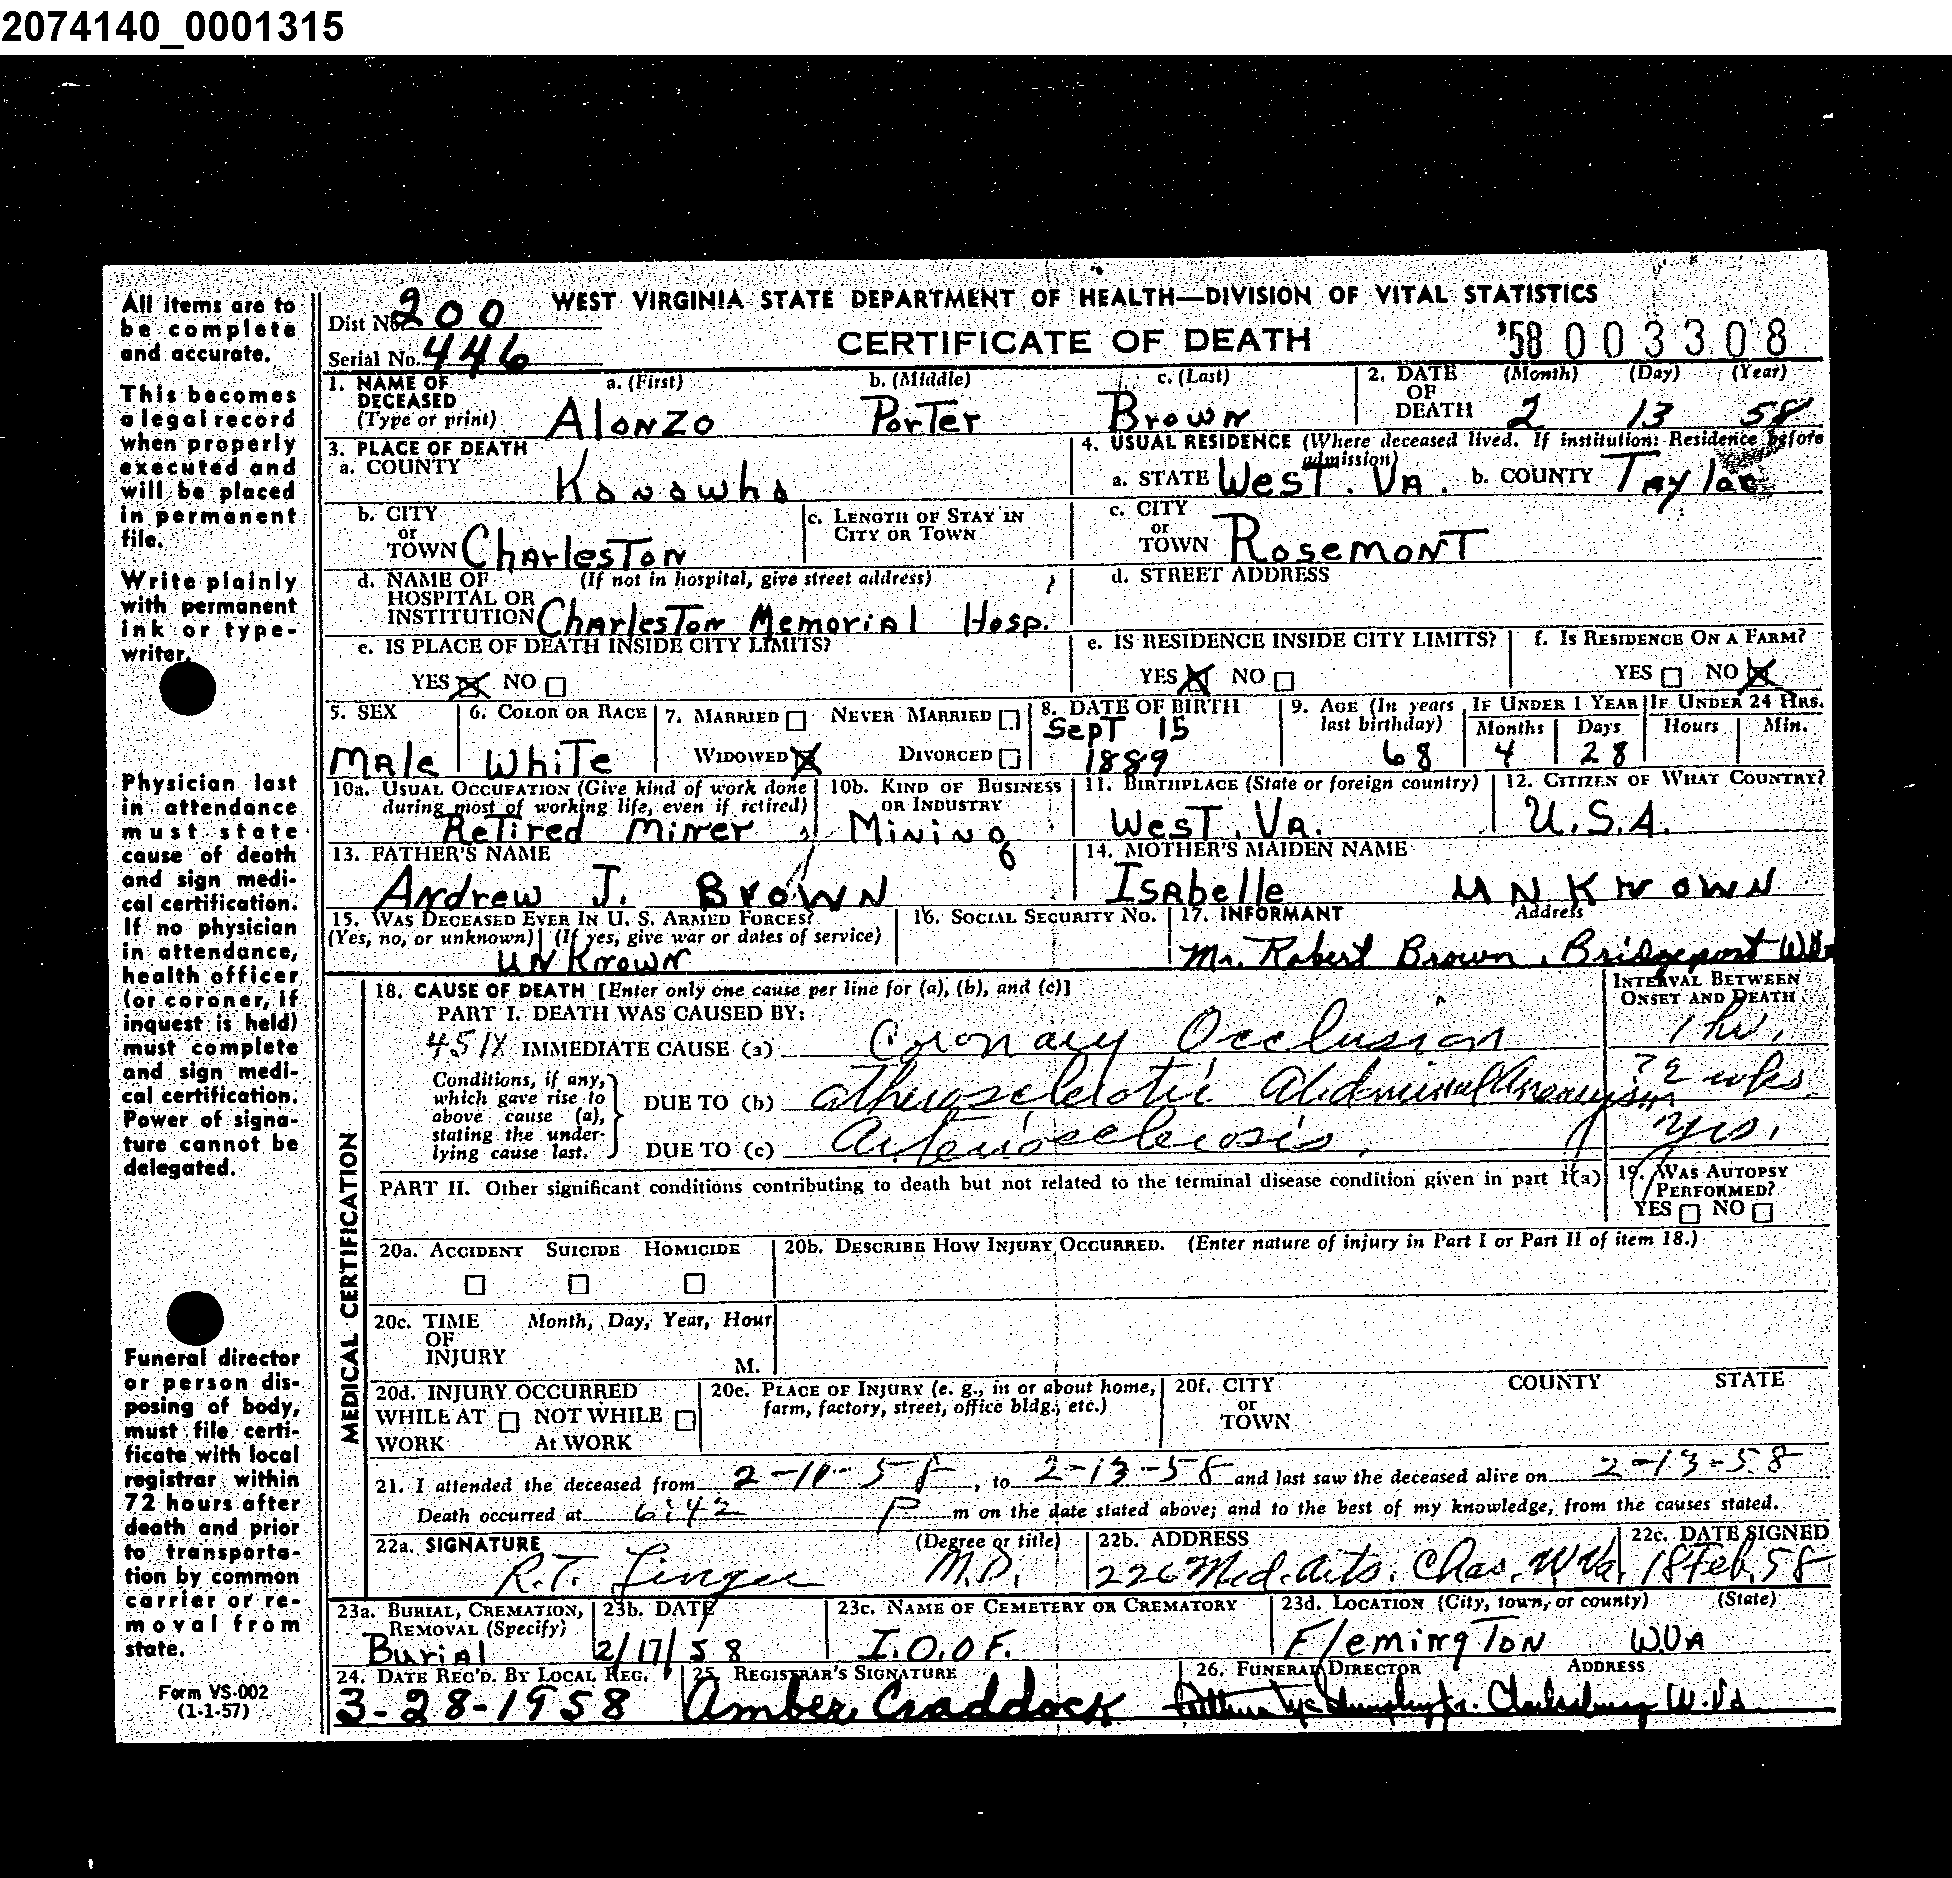 2074140_0001315
All items are to
be complete
and accurate.
This becomes
a legal record
when properly
executed and
will be placed
in permanent
file.
Write plainly
with permanent
ink or type-
writer.
Physician last
in attendance
must state
cause of death
and sign medi-
cal certification.
If no physician
in attendance,
health officer
(or coroner, if
inquest is held)
must complete
and sign medi-
cal certification.
Power of signa-
ture cannot be
delegated.
Funeral director
or person dis-
posing of body,
must file certi-
ficate with local
registrar within
72 hours after
death and prior
to transporta-
tion by common
carrier or re-
moval from
state.
Form VS-002
(1-1-57)
Dist No. 200
Serial No. 446
WEST VIRGINIA STATE DEPARTMENT OF HEALTH—DIVISION OF VITAL STATISTICS
CERTIFICATE OF DEATH
'58 003308
1. NAME OF DECEASED (Type or print) a. (First) b. (Middle) c. (Last)
Alonzo Porter Brown
2. DATE OF DEATH (Month) (Day) (Year)
2 13 58
3. PLACE OF DEATH
a. COUNTY Kanawha
4. USUAL RESIDENCE (Where deceased lived. If institution: Residence before admission)
a. STATE West. Va. b. COUNTY Taylor
b. CITY or TOWN Charleston
c. LENGTH OF STAY IN CITY OR TOWN
c. CITY or TOWN Rosemont
d. NAME OF HOSPITAL OR INSTITUTION (If not in hospital, give street address)
Charleston Memorial Hosp.
d. STREET ADDRESS
e. IS PLACE OF DEATH INSIDE CITY LIMITS?
YES NO
e. IS RESIDENCE INSIDE CITY LIMITS?
YES NO
f. IS RESIDENCE ON A FARM?
YES NO
5. SEX
Male
6. COLOR OR RACE
White
7. MARRIED NEVER MARRIED
WIDOWED DIVORCED
8. DATE OF BIRTH
Sept 15
1889
9. AGE (In years last birthday)
68
IF UNDER 1 YEAR
Months Days
4 28
IF UNDER 24 HRS.
Hours Min.
10a. USUAL OCCUPATION (Give kind of work done during most of working life, even if retired)
Retired Miner
10b. KIND OF BUSINESS OR INDUSTRY
Mining
11. BIRTHPLACE (State or foreign country)
West. Va.
12. CITIZEN OF WHAT COUNTRY?
U.S.A.
13. FATHER'S NAME
Andrew J. Brown
14. MOTHER'S MAIDEN NAME
Isabelle UNKNOWN
15. WAS DECEASED EVER IN U. S. ARMED FORCES?
(Yes, no, or unknown) (If yes, give war or dates of service)
UNKnown
16. SOCIAL SECURITY NO.
17. INFORMANT Address
Mr. Robert Brown, Bridgeport WVa
MEDICAL CERTIFICATION
18. CAUSE OF DEATH [Enter only one cause per line for (a), (b), and (c)]
INTERVAL BETWEEN ONSET AND DEATH
PART I. DEATH WAS CAUSED BY:
451X IMMEDIATE CAUSE (a) Coronary Occlusion 1 hr.
Conditions, if any, which gave rise to above cause (a), stating the underlying cause last.
DUE TO (b) atherosclerotic abdominal Aneurysm ? 2 wks
DUE TO (c) Arteriosclerosis. yrs.
PART II. Other significant conditions contributing to death but not related to the terminal disease condition given in part I(a)
19. WAS AUTOPSY PERFORMED?
YES NO
20a. ACCIDENT SUICIDE HOMICIDE
20b. DESCRIBE HOW INJURY OCCURRED. (Enter nature of injury in Part I or Part II of item 18.)
20c. TIME OF INJURY Month, Day, Year, Hour
M.
20d. INJURY OCCURRED
WHILE AT WORK NOT WHILE At WORK
20e. PLACE OF INJURY (e. g., in or about home, farm, factory, street, office bldg., etc.)
20f. CITY or TOWN COUNTY STATE
21. I attended the deceased from 2-10-58, to 2-13-58 and last saw the deceased alive on 2-13-58
Death occurred at 6:42 P m on the date stated above; and to the best of my knowledge, from the causes stated.
22a. SIGNATURE (Degree or title)
R.T. Linger M.D.
22b. ADDRESS
226 Med. Arts. Chas. W. Va.
22c. DATE SIGNED
18 Feb. 58
23a. BURIAL, CREMATION, REMOVAL (Specify)
Burial
23b. DATE
2/17/58
23c. NAME OF CEMETERY OR CREMATORY
I.O.O.F.
23d. LOCATION (City, town, or county) (State)
Flemington W.VA
24. DATE REC'D. BY LOCAL REG.
3-28-1958
25. REGISTRAR'S SIGNATURE
Amber Craddock
26. FUNERAL DIRECTOR ADDRESS
Clarksburg W.Va